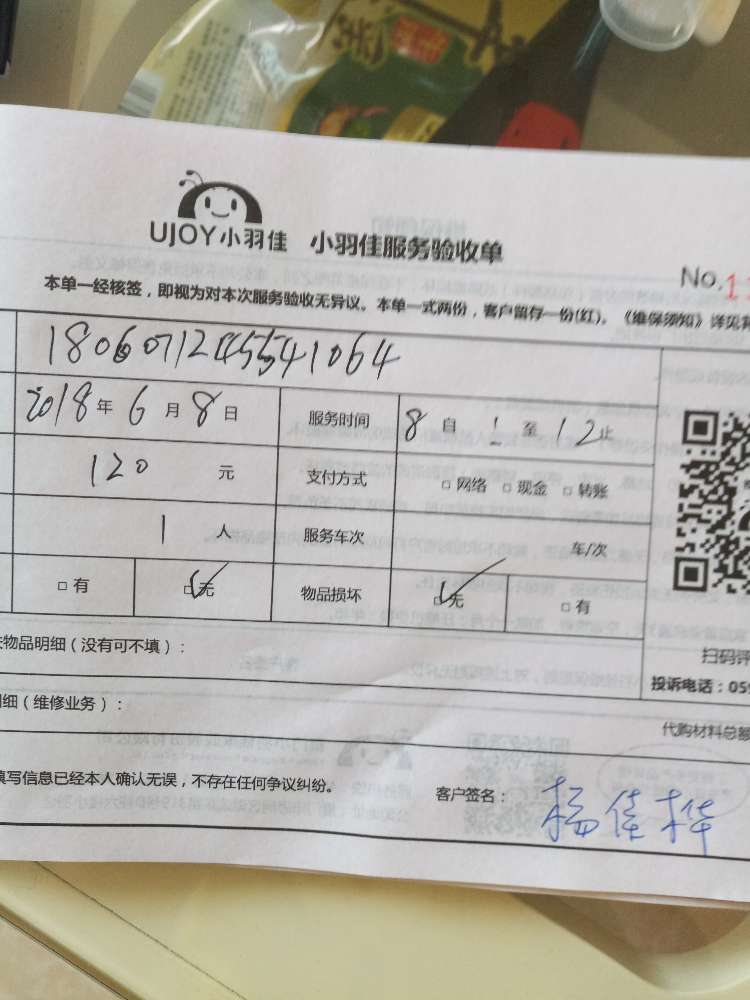 UJOY小羽佳 小羽佳服务验收单
No.1
本单一经核签，即视为对本次服务验收无异议。本单一式两份，客户留存一份(红)。《维保须知》详见背
2018年6月8日 服务时间 8自 至12止
120元 支付方式 □网络 □现金 □转账
1人 服务车次 车/次
□有 □无 物品损坏 □无 □有
物品明细（没有可不填）：
扫码评
投诉电话：059
细（维修业务）：
代购材料总额
填写信息已经本人确认无误，不存在任何争议纠纷。
客户签名： 杨佳桦